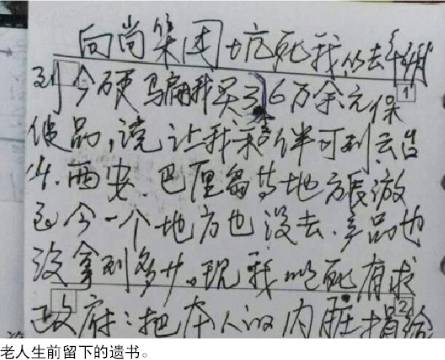 向尚集团坑死我 从去年
到今硬骗我买了6万余元保 1
健品,说让我和老伴可到云台
山.西安.巴厘岛等地方旅游
至今一个地方也没去.产品也
没拿到多少。现我以死有求
政府:把本人的内脏捐给 2
老人生前留下的遗书。